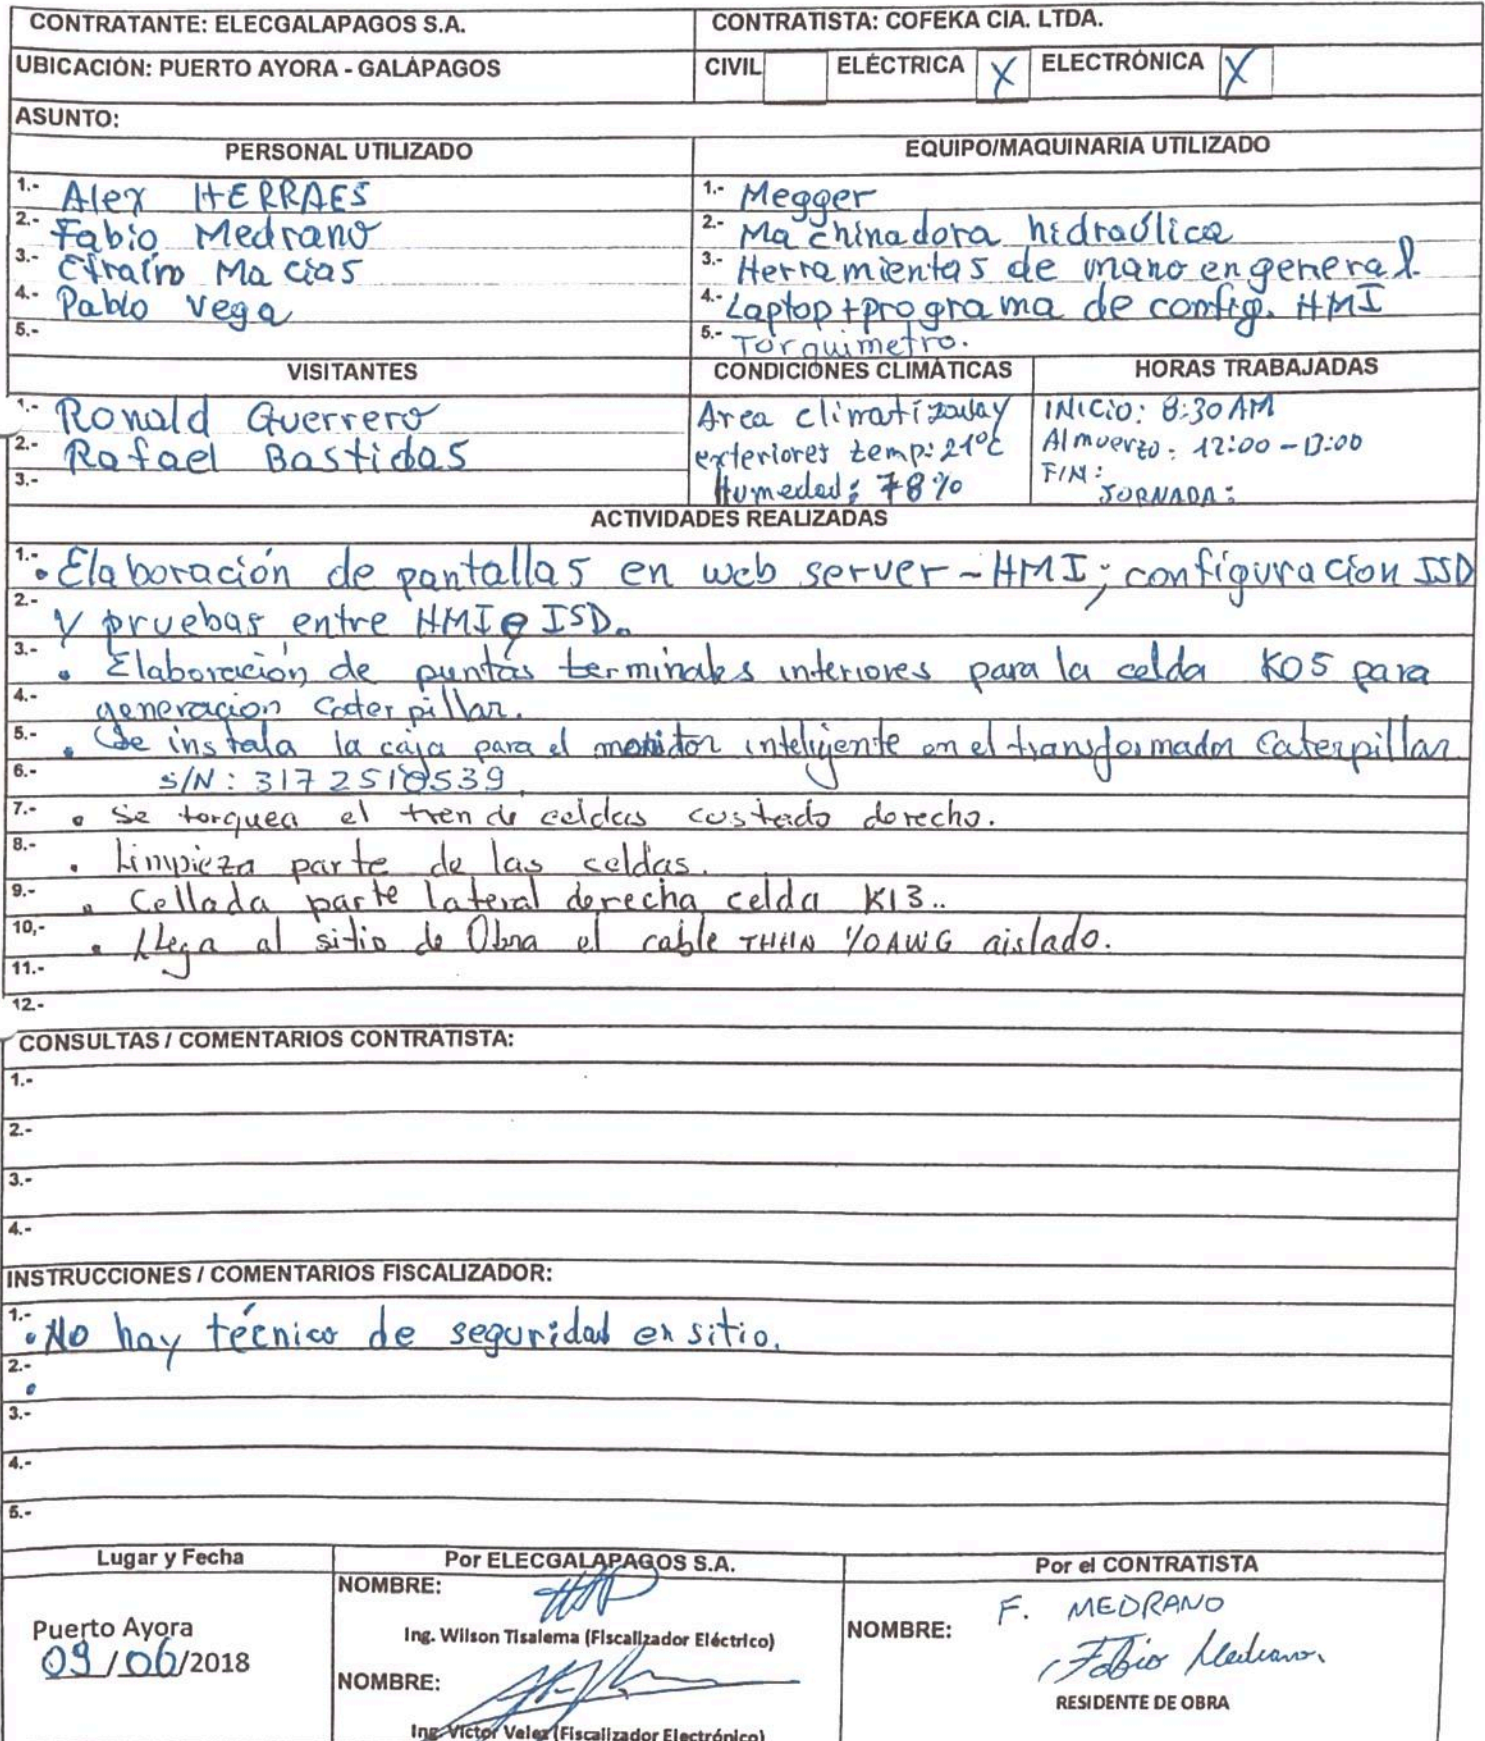 CONTRATANTE: ELECGALAPAGOS S.A.
CONTRATISTA: COFEKA CIA. LTDA.
UBICACIÓN: PUERTO AYORA - GALÁPAGOS
CIVIL ELÉCTRICA X ELECTRÓNICA X
ASUNTO:
PERSONAL UTILIZADO
1.- Alex HERRAES
2.- Fabio Medrano
3.- Efraín Macias
4.- Pablo Vega
5.-
EQUIPO/MAQUINARIA UTILIZADO
1.- Megger
2.- Machinadora hidraúlica
3.- Herramientas de mano en general.
4.- Laptop + programa de config. HMI
5.- Torquimetro.
VISITANTES
1.- Ronald Guerrero
2.- Rafael Bastidas
3.-
CONDICIONES CLIMÁTICAS
Area climatizada y
exteriores temp: 21°C
Humedad: 78%
HORAS TRABAJADAS
INICIO: 8:30 AM
Almuerzo: 12:00 - 13:00
FIN:
JORNADA:
ACTIVIDADES REALIZADAS
1.- • Elaboración de pantallas en web server - HMI; configuracion ISD
2.- y pruebas entre HMI e ISD.
3.- • Elaboración de puntas terminales interiores para la celda K05 para
4.- generacion Caterpillar.
5.- • Se instala la caja para el monitor inteligente en el transformador Caterpillar
6.- S/N: 3172510539.
7.- • Se torquea el tren de celdas costado derecho.
8.- • Limpieza parte de las celdas.
9.- • Cellada parte lateral derecha celda K13..
10,- • Llega al sitio de Obra el cable THHN 1/0 AWG aislado.
11.-
12.-
CONSULTAS / COMENTARIOS CONTRATISTA:
1.-
2.-
3.-
4.-
INSTRUCCIONES / COMENTARIOS FISCALIZADOR:
1.- • No hay técnico de seguridad en sitio.
2.- •
3.-
4.-
5.-
Lugar y Fecha
Puerto Ayora
09/06/2018
Por ELECGALAPAGOS S.A.
NOMBRE:
Ing. Wilson Tisalema (Fiscalizador Eléctrico)
NOMBRE:
Ing. Víctor Velez (Fiscalizador Electrónico)
Por el CONTRATISTA
NOMBRE: F. MEDRANO
Fabio Medrano.
RESIDENTE DE OBRA